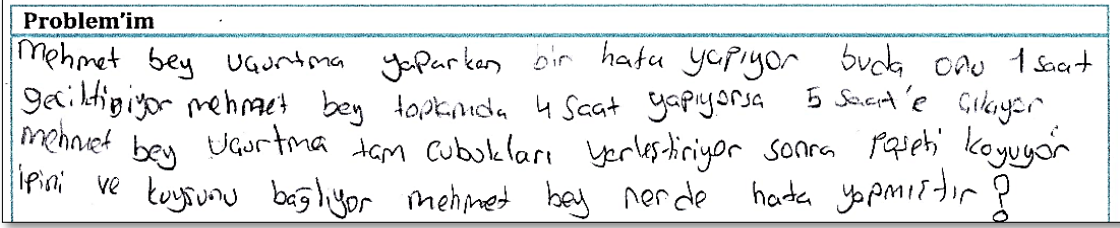 Problem'im
Mehmet bey uçurtma yaparken bir hata yapıyor buda onu 1 saat
geciktiriyor mehmet bey toplamda 4 saat yapıyorsa 5 saat'e çıkıyor
mehmet bey uçurtma tam çubukları yerleştiriyor sonra poşeti koyuyor
ipini ve kuyrunu bağlıyor mehmet bey nerde hata yapmıştır?